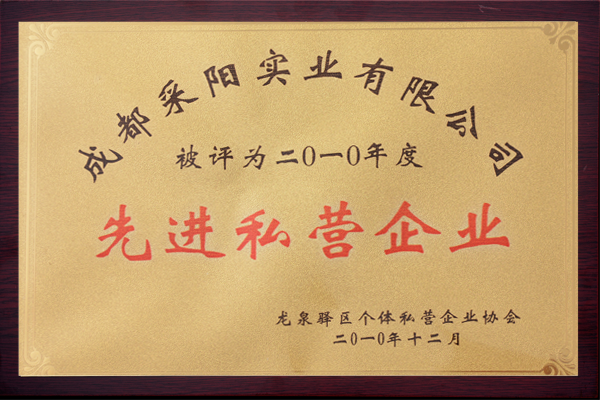 成都采阳实业有限公司
被评为二0一0年度
先进私营企业
龙泉驿区个体私营企业协会
二0一0年十二月